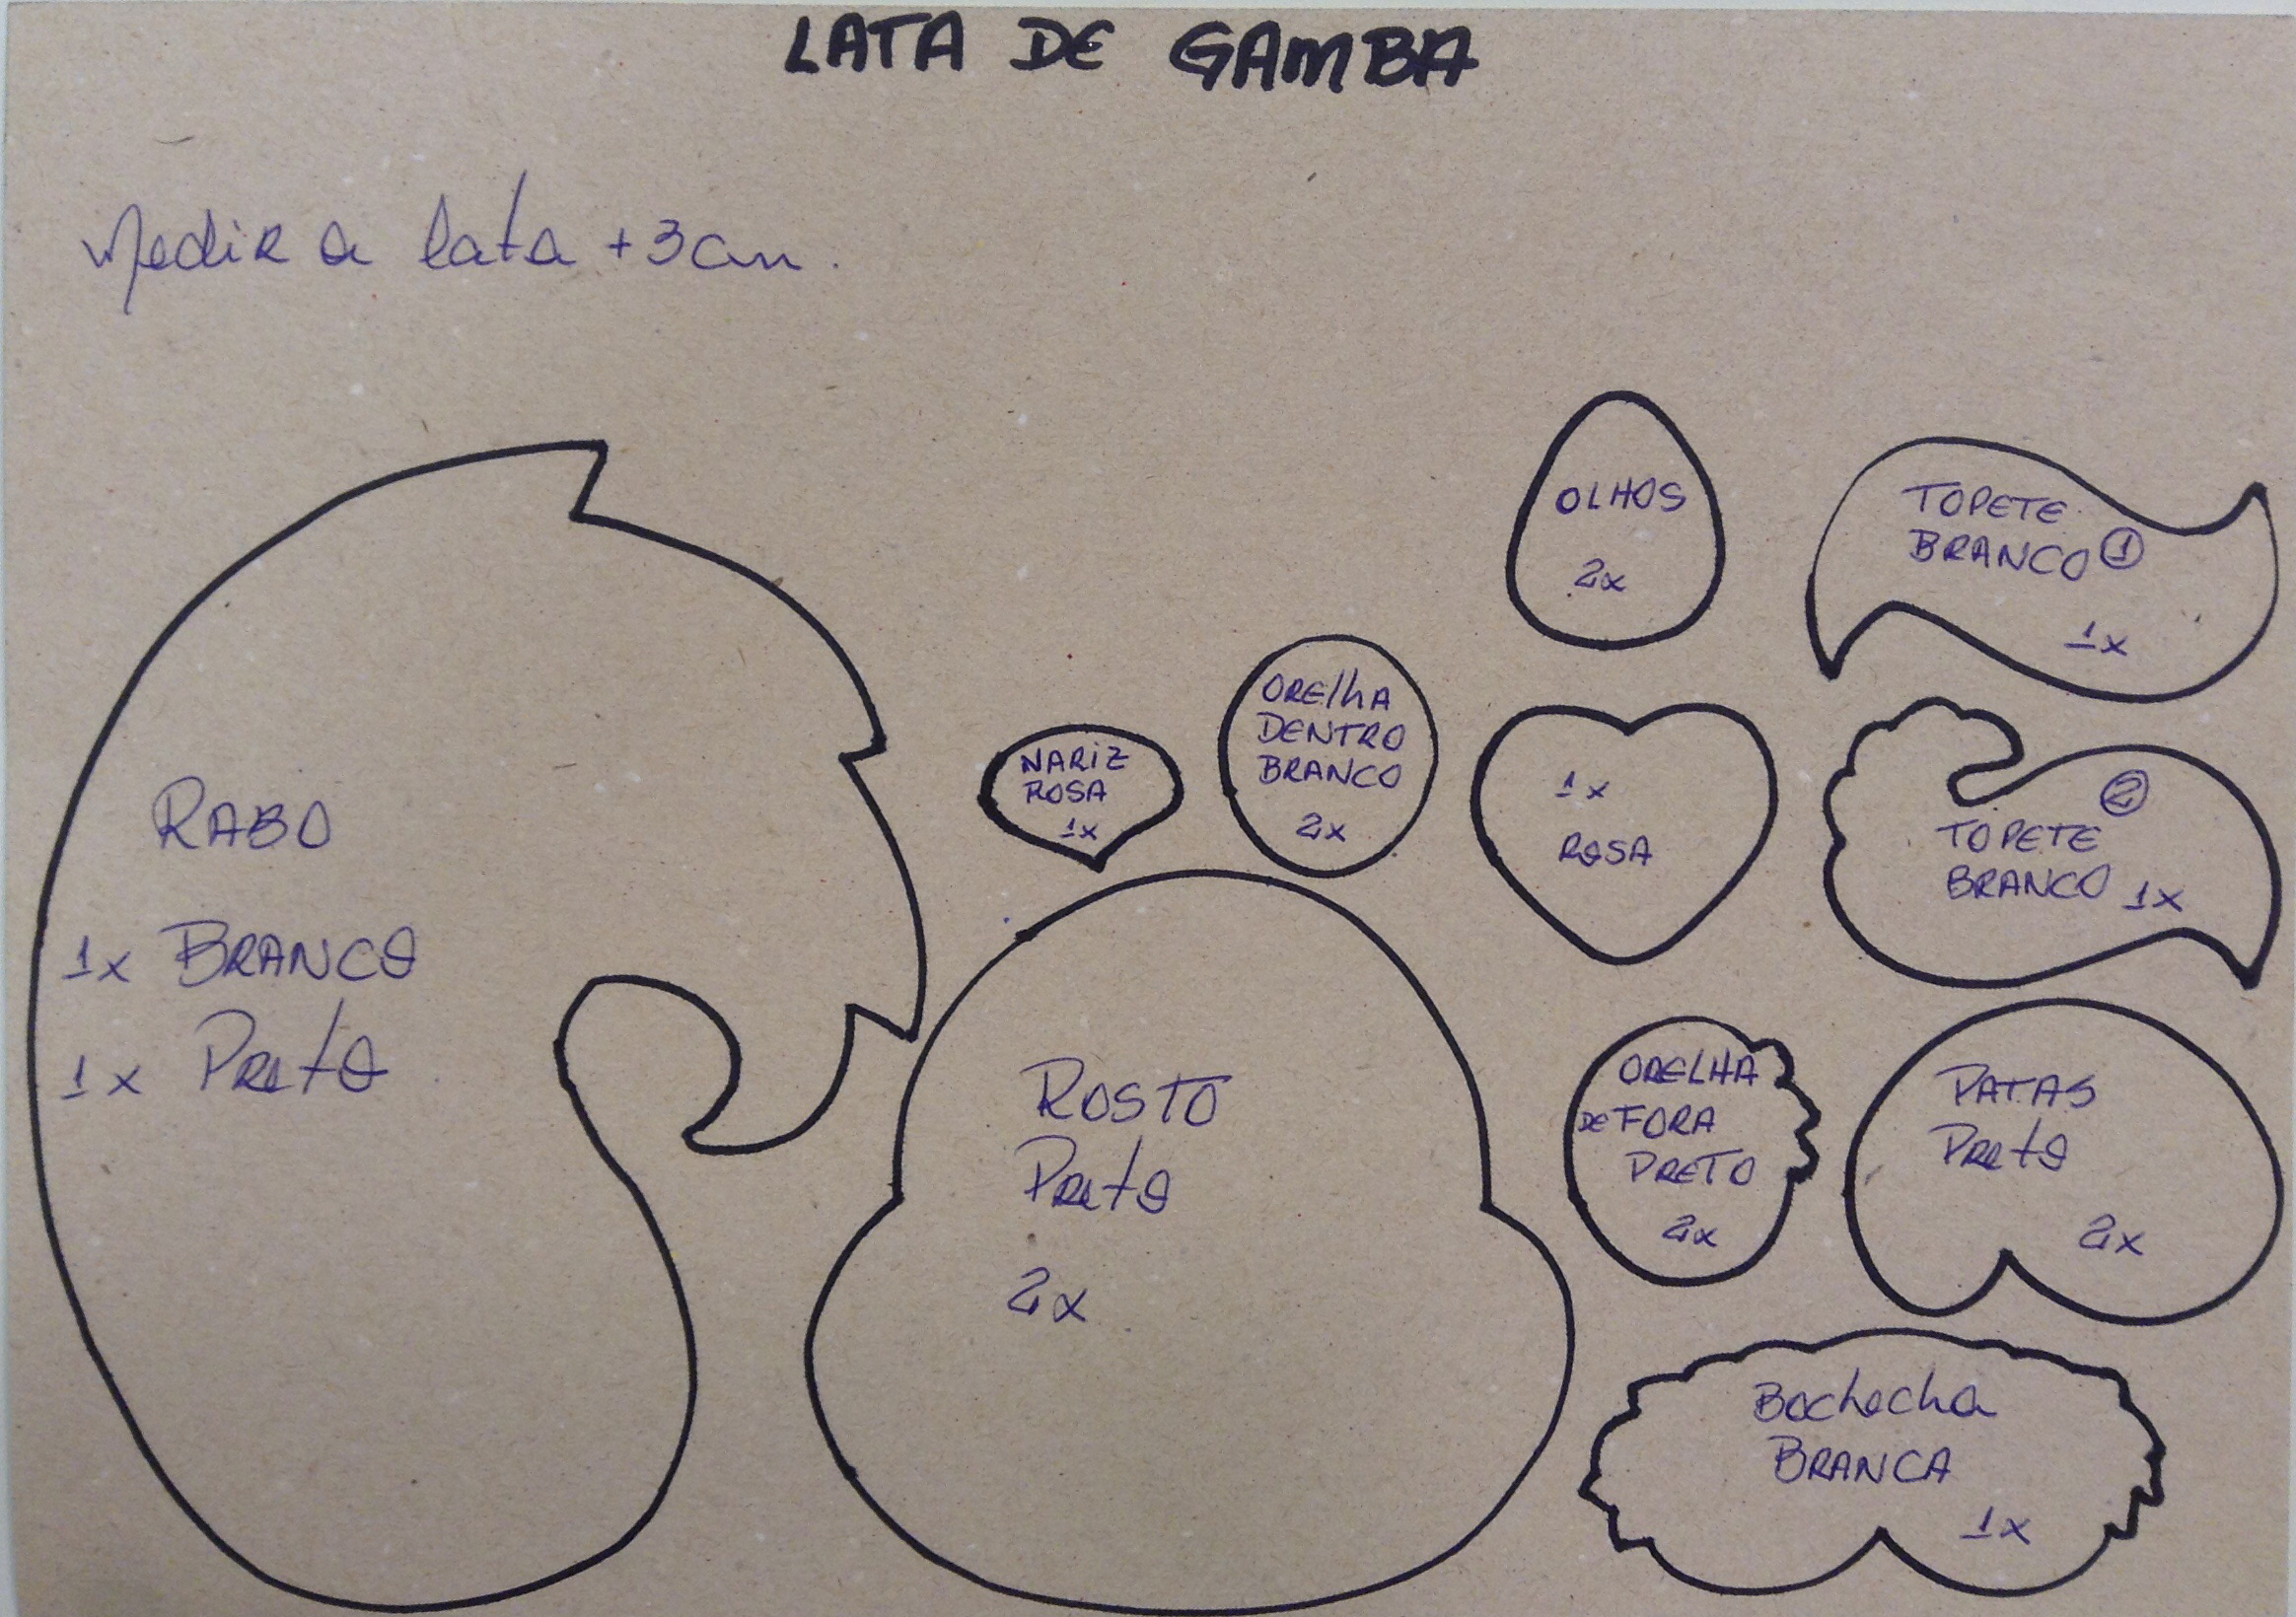 LATA DE GAMBA
Medir a lata +3cm.
OLHOS
2x
TOPETE
BRANCO 1
1x
ORElhA
DENTRO
BRANCO
2x
NARIZ
ROSA
1x
1x
ROSA
2
TOPETE
BRANCO 1x
RABO
1x BRANCO
1x Preto
ROSTO
Preto
2x
ORELHA
DE FORA
PRETO
2x
PATAS
Preto
2x
Bochecha
BRANCA
1x